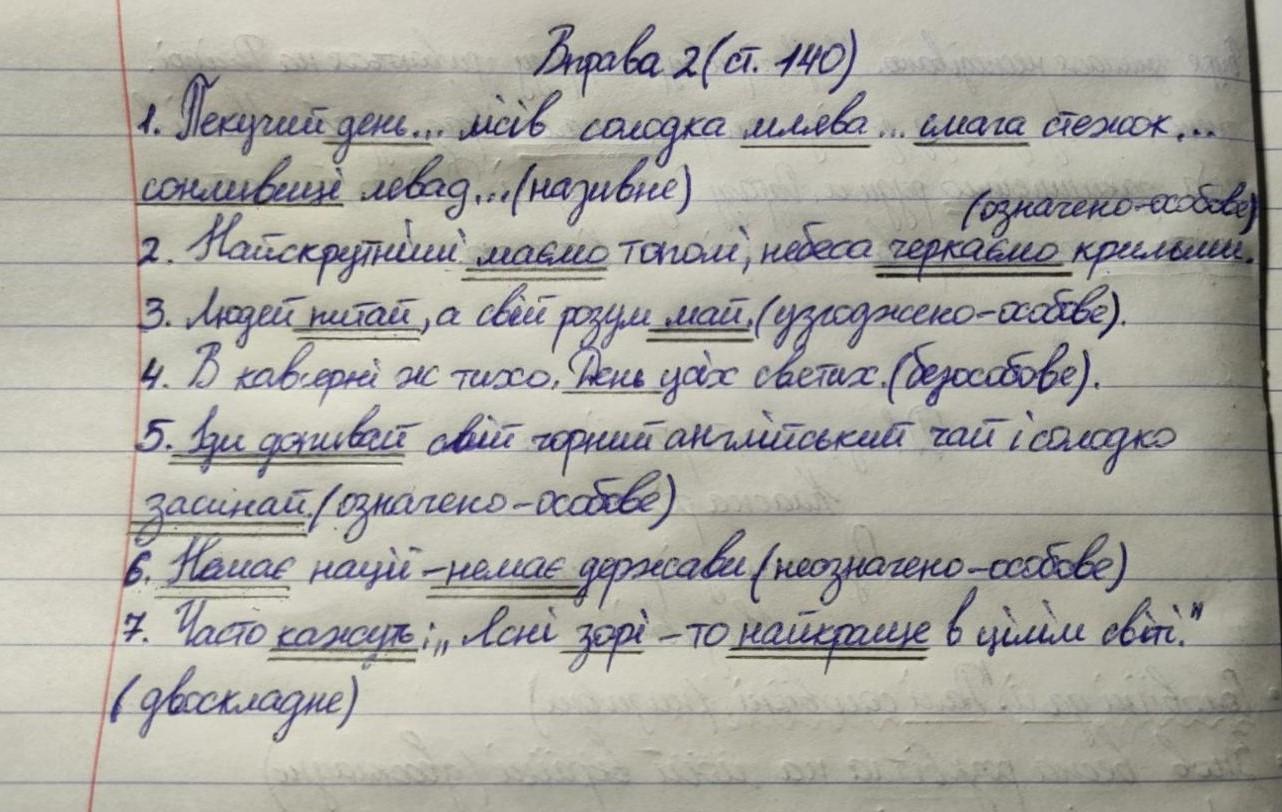 Вправа 2 (ст. 140)
1. Пекучий день... лісів солодка млява... смага стежок...
сонливиці левад... (називне)
(означено-особове)
2. Найскрутніші маємо тополі, небеса черкаємо крильми.
3. Людей питай, а свій розум май. (узгоджено-особове).
4. В кав'ярні ж тихо. День усіх святих. (безособове).
5. Іди допивай свій чорний англійський чай і солодко
засинай. (означено-особове)
6. Немає нації – немає держави (неозначено-особове)
7. Часто кажуть: „Ясні зорі – то найкраще в цілім світі."
(двоскладне)